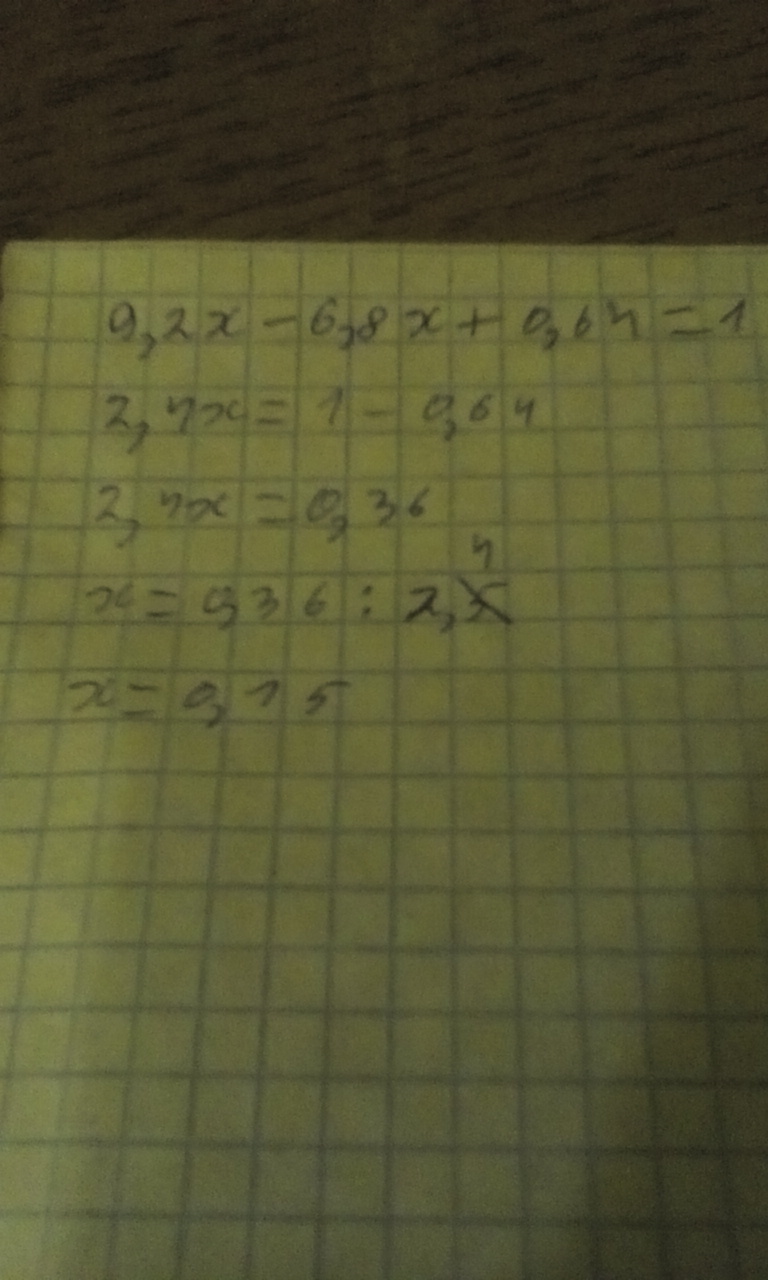 9,2x - 6,8x + 0,64 = 1
2,4x = 1 - 0,64
2,4x = 0,36
x = 0,36 : 2,4
x = 0,15